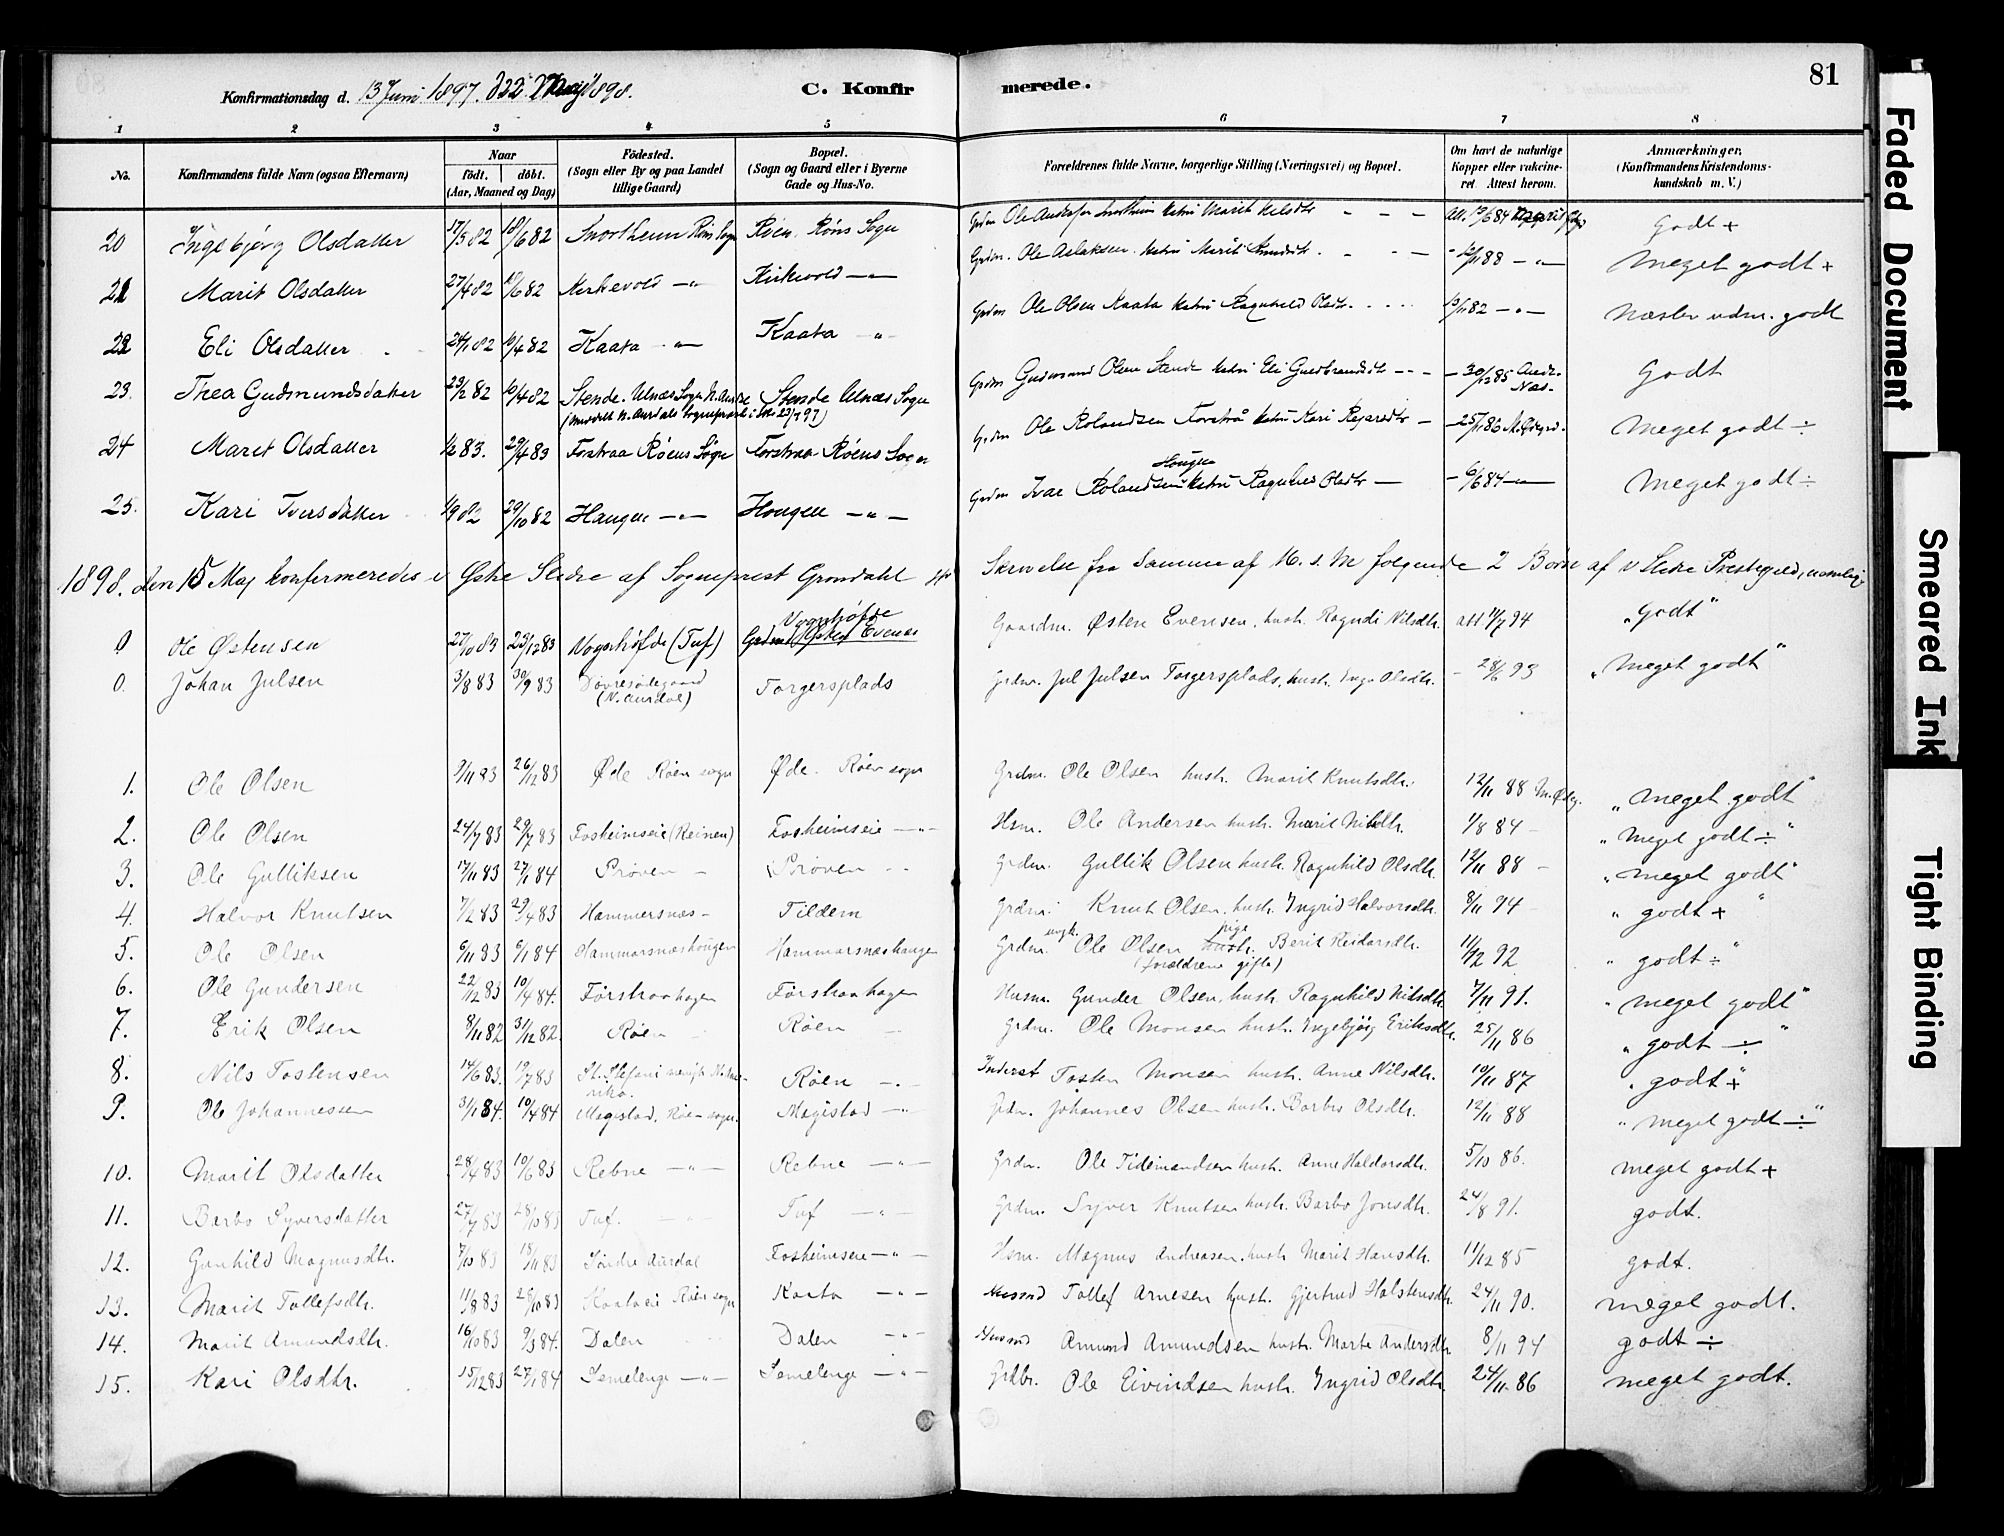 81
Konfirmationsdag d. 13 Juni 1897. & 22 Maj 1898.
C. Konfirmerede.
1 2 3 4 5 6 7 8
No. Konfirmandens fulde Navn (ogsaa Efternavn) Naar födt. döbt. (Aar, Maaned og Dag) Födested. (Sogn eller By og paa Landet tillige Gaard) Bopæl. (Sogn og Gaard eller i Byerne Gade og Hus-No. Forældrenes fulde Navne, borgerlige Stilling (Næringsvei) og Bopæl. Om havt de naturlige Kopper eller vakcineret. Attest herom. Anmærkninger. (Konfirmandens Kristendomskundskab m. V.)
20 Ingebjörg Olsdatter 17/5 82 18/6 82 Röns Sogn Röen. Röns Sogn Grdm Ole Andersen Marit Att. Godt +
21 Marit Olsdatter 27/4 82 18/6 82 Kirkevold -"- Kirkevold -"- Grdm. Ole Aslaksen Marit 88 -"- Meget godt +
22 Eli Olsdatter 82 10/4 82 Kaata -"- Kaata -"- Grdm Ole Olsen Kaata Ragnhild Olsdtr. 82 -"- Næsten udm. godt
23. Thea Gudmundsdatter 23/2 82 10/4 82 Stende. Ulnæs Sogn N. Aurdal Stende Ulnæs Sogn Grdm Gudmund Olsen Stende Eli Gudbrandsdtr - - - 30/12 85 Godt
24 Marit Olsdatter 1/2 83. 29/4 83 Forstraa Röens Sogn Forstraa Röens Sogn Grdm Ole Rolandsen Kari - 25/11 86 Meget godt ÷
25. Kari Iversdatter 1/9 82 29/10 82 Haugen -"- Hougen -"- Grdm Ivar Rolandsen Hougen Ragnhild Olsdtr - 84 -"- Meget godt ÷
1898. den 15 Maj konfirmeredes i Østre Slidre af Sogneprest Grøndahl Skrivelse fra Samme af M. følgende 2 Børn af v Slidre Prestegjeld, nemlig:
0 Ole Østensen 27/10 83 23/12 83 Vognhøfde (Tuf) Vognhøfde Grdm. Østen Evensen Gaardm. Østen Evensen, hustr. Ragndi Nilsdtr. att 11/7 94 "godt"
0. Johan Julsen 3/8 83 30/9 83 (N. Aurdal) Torgersplads Grdm. Jul Julsen Torgersplads, hustr. Inga Olsdtr. - 28/6 93 "meget godt"
1. Ole Olsen 9/11 83 26/12 83 Øde Røen sogn Øde. Røen sogn Grdm. Ole Olsen hustr. Marit Knutsdtr. 12/11 88 "meget godt"
2. Ole Olsen 24/7 83 29/7 83 Fosheimseie (Reinen) Fosheimseie -"- Hsm. Ole Andersen hustr. Marit Nilsdtr. 1/8 84 - "meget godt ÷"
3. Ole Gulliksen 17/11 83 27/1 84 Prøven - Prøven -"- Grdm. Gullik Olsen hustr. Ragnhild Olsdtr. 12/11 88 - "meget godt"
4. Halvor Knutsen 7/2 83 29/4 83 Hammersnæs - Tildem Grdm. Knut Olsen, hustr. Ingrid Halvorsdtr. 8/11 94 - "godt + "
5. Ole Olsen 6/11 83 6/1 84 Hammarsnæshougen Hammarsnæshaugen Grdm. ungk. Ole Olsen pige Berit Reidarsdtr. (forældrene gifte) 11/2 92 "godt ÷"
6. Ole Gundersen 22/12 83 10/4 84. Førstraahagen Førstraahagen Husm. Gunder Olsen, hustr. Ragnhild Nilsdtr. 7/11 91. "meget godt"
7. Erik Olsen 8/11 82 31/12 82. Røen Røen Grdm. Ole Monsen hustr. Ingebjörg Eriksdtr. 25/11 86 "godt ÷"
8. Nils Tostensen 14/6 83. 83 St. Stefani Røen -"- Inderst Tosten Monsen hustr. Anne Nilsdtr. 10/11 87 "godt +"
9. Ole Johannessen 3/1 84. 10/4 84 Magistad, Røen sogn. Magistad -"- Grdm. Johannes Olsen hustr. Barbro Olsdtr. 12/11 88 "meget godt ÷"
10. Marit Olsdatter 28/4 83 10/6 83 Rebne -"- Rebne -"- Grdm. Ole Tidemandsen hustr. Anne Haldorsdtr. 5/10 86. meget godt +
11. Barbo Syversdatter 27/7 83 28/10 83 Tuf. -"- Tuf -"- Grdm. Syver Knutsen hustr. Barbo Jonsdtr. 24/8 91. godt.
12. Gunhild Magnusdtr. 7/10 83 18/11 83 Søndre Aurdal Fosheimseie -"- Hsm. Magnus Andreasen hustr. Marit Hansdtr. 11/12 85 godt.
13. Marit Tollefsdtr. 11/8 83 29/10 83 Kaataeie Røen sogn Kaata -"- Husmd Tollef Arnesen hustr. Gjertrud Holstensdtr. 24/11 90. meget godt.
14. Marit Amundsdtr. 16/10 83 9/3 84. Dalen Dalen -"- Husmd Amund Amundsen hustr. Marte Andersdtr. 8/11 94 godt ÷
15. Kari Olsdtr. 15/12 83 27/1 84 Semelenge -"- Semelenge -"- Grdbr. Ole Eivindsen hustr. Ingrid Olsdtr. 24/11 86 meget godt.
Faded Document
Smeared Ink
Tight Binding